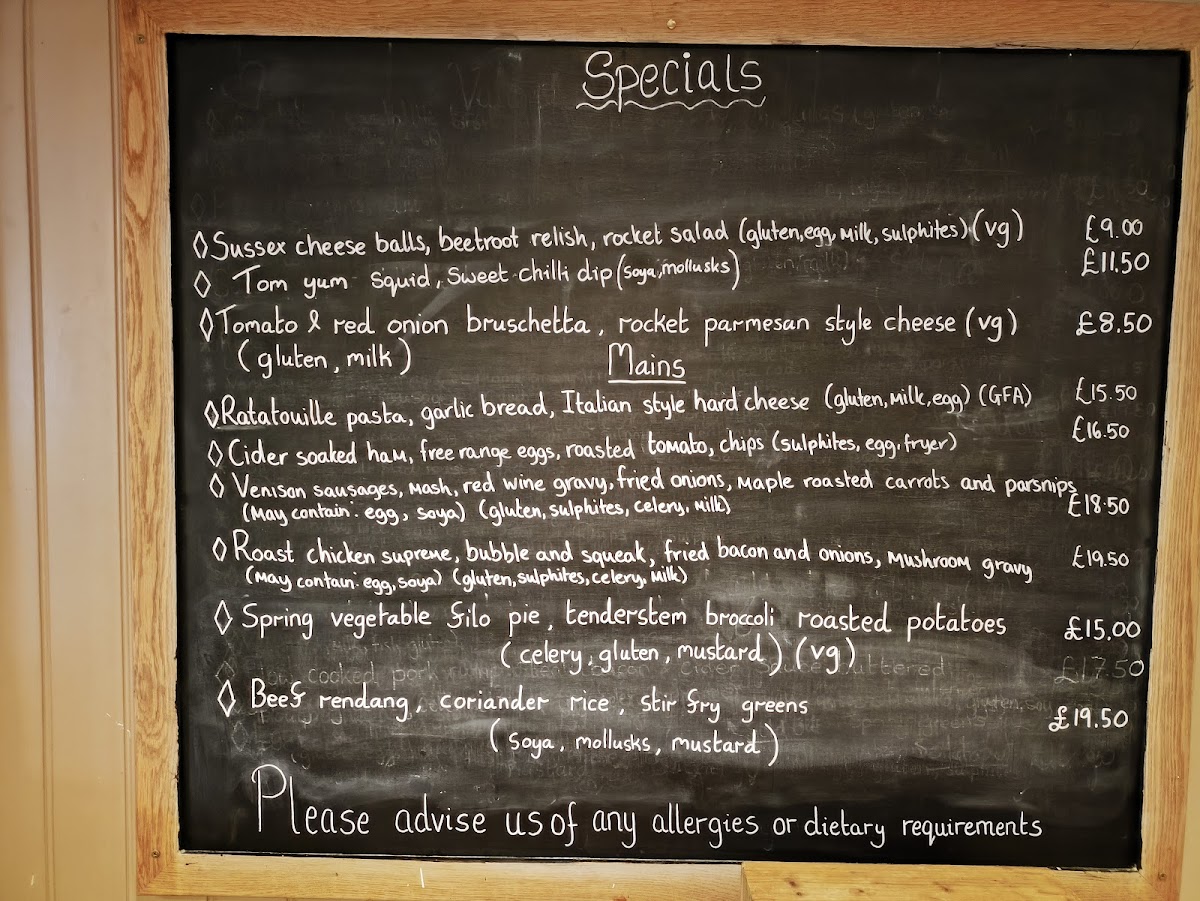 Specials
Sussex cheese balls, beetroot relish, rocket salad (gluten, egg, milk, sulphites) (vg) £9.00
Tom yum squid, sweet chilli dip (soya, mollusks) £11.50
Tomato & red onion bruschetta, rocket parmesan style cheese (vg) £8.50
(gluten, milk)
Mains
Ratatouille pasta, garlic bread, Italian style hard cheese (gluten, milk, egg) (GFA) £15.50
Cider soaked ham, free range eggs, roasted tomato, chips (sulphites, egg, fryer) £16.50
Venison sausages, mash, red wine gravy, fried onions, maple roasted carrots and parsnips
(may contain: egg, soya) (gluten, sulphites, celery, milk) £18.50
Roast chicken supreme, bubble and squeak, fried bacon and onions, mushroom gravy £19.50
(may contain: egg, soya) (gluten, sulphites, celery, milk)
Spring vegetable filo pie, tenderstem broccoli roasted potatoes £15.00
(celery, gluten, mustard) (vg)
£17.50
Beef rendang, coriander rice, stir fry greens £19.50
(soya, mollusks, mustard)
Please advise us of any allergies or dietary requirements